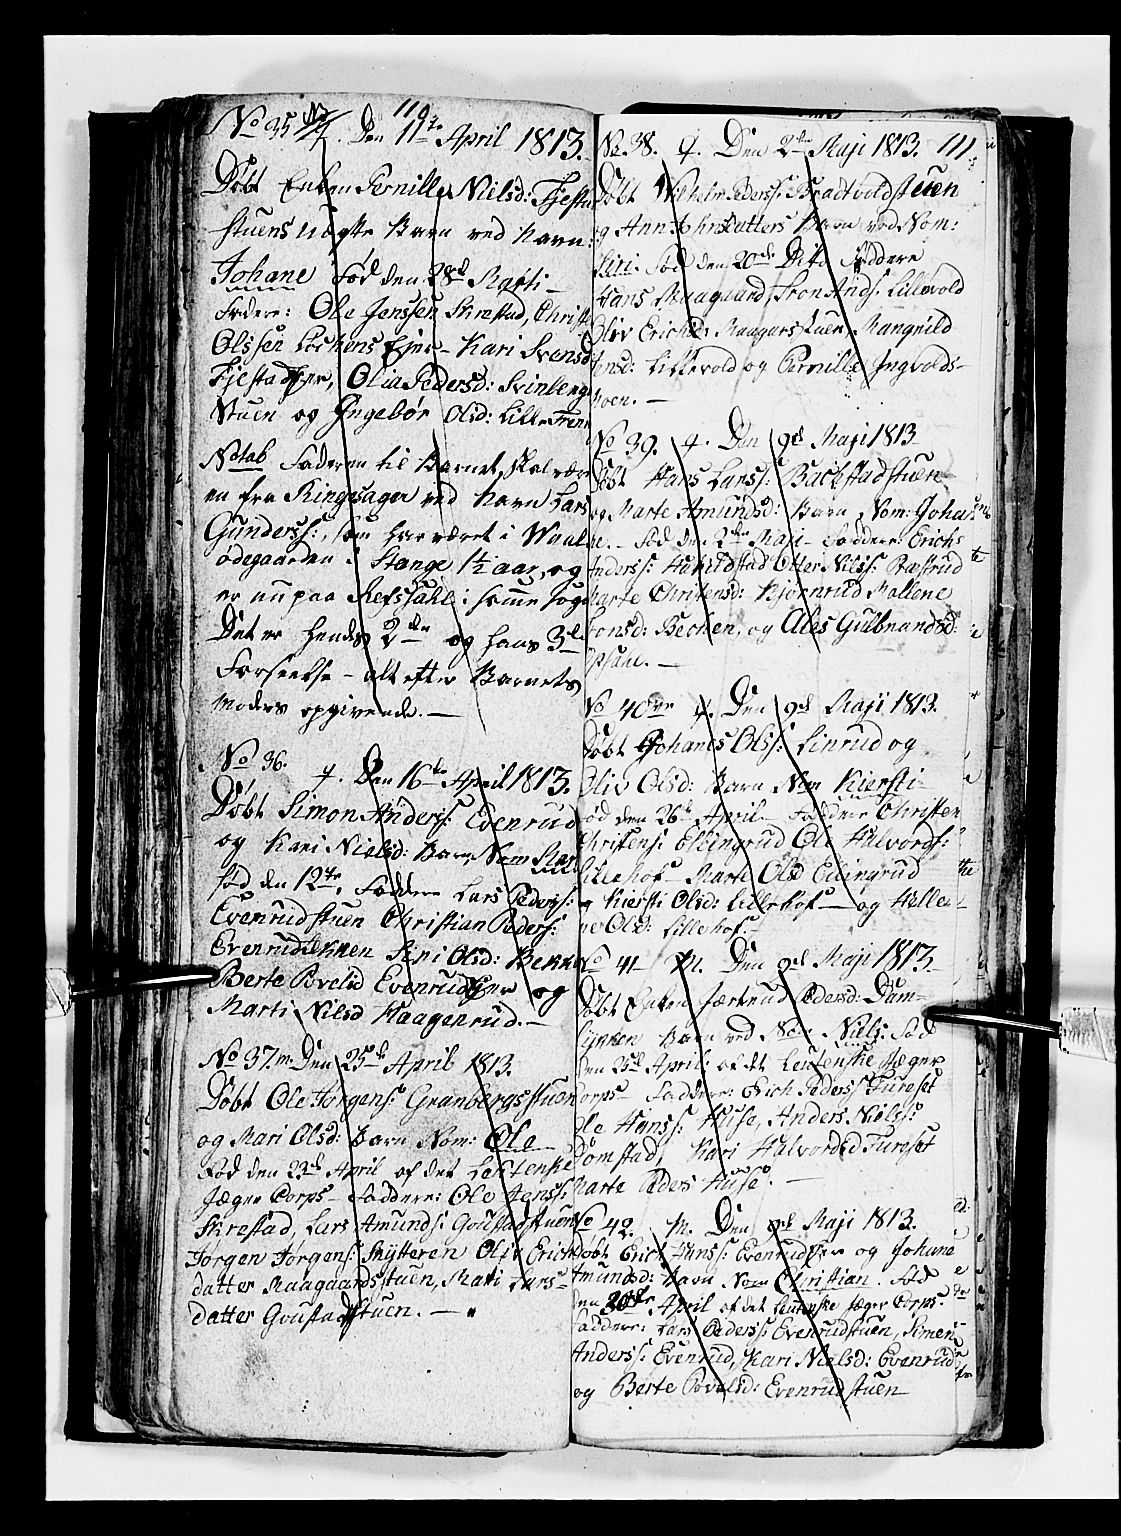 110.
No 35 Den 11te April 1813.
Døbt Enken Pernille Nielsd: Fjestu
stuens uægte Barn ved Navn:
Johane Fød den 28de Marti —
Fadere: Ole Jenssen Skrestad, Christ
Olssen Lockens Ejer — Kari Svensd
Fjestad Ejer, Olia Pedersd: Svinberg
Stuen og Ingebor Olsd: Lille
Notab Faderen til Barnet skal være
en fra Ringsager ved Navn Lars
Gunderss:, som har været i
ødegaarden i Stange 1½ aar, og
er nu paa Refssahl i samme sogn
Det er hendes 2den og hans 3de
Forseelse — alt efter Barnets
Moders opgivende. —
No 36. q. Den 16de April 1813.
Døbt Simon Anderss: Evenrud
og Kari Nielsd: Barn Nom
fød den 12te. Faddere Lars Pederss:
Evenrudstuen Christian Pederss:
Evenrud Siri Olsd:
Berte Povelsd Evenrud Ejer og
Marti Nilsd Haagenrud. —
No 37. m. Den 25de April 1813.
Døbt Ole Jørgens: Granbergsstuen
og Mari Olsd: Barn Nom: Ole —
Fød den 23de April af det Leutenske
Jæger Corps — Faddere: Ole Jenss:
Skrestad, Lars Amunds: Goustadstuen
Jørgen Jørgens: Skytteren Oliv Erichs
datter Maagaardsstuen, Mari Lars
datter Goustadstuen. —
No. 38. q. Den 2den Maji 1813. 111
Døbt Wilhelm Pederss: Bradtvoldstuen
og Ann Johnsdatters Barn ved Nom:
Siri. Fød den 20de Dito Faddere
Hans Maagaard, Tron Ands: Lillevold
Oliv Erichsd: Maagarstuen, Mangnild
Jensd: Lillevold og Pernille Ingvolds-
moen. —
No 39. q. Den 9de Maji 1813
Døbt Hans Larss: Backstadstuen
og Marte Amundsd: Barn Nom: Johan
ne. — Fød den 2den Maji — Faddere: Erich
Anderss: Otter Nilss: Ræstrud
Marte Christensd: Bjørnrud Mallene
Tronsd: Becken, og Ales Gulbrandsd:
Opsahl. —
No 40de q. Den 9de Maji 1813.
Døbt Johanes Olss: Linrud og
Oliv Olsd: Barn Nom Kiersti —
Fød den 26de April — Faddere Christen
Christens: Ellingrud Ole Halvords:
Lillehof — Marte Olsd Ellingrud
Kiersti Olsd: Lillehof — og Helle
ne Olsd: Lillehof. —
No 41 — m. Den 9de Maji 1813
Døbt Enken Jærtrud Pedersd: Dom-
Barn ved Nom Niels: Fød
den 25de April: af det Leutenske Jæger
Corps — Faddere: Erich Pederss Fureset
Ole Hanss: Huse, Anders Niels:
Domstad, Kari Halvordsd Fureset
Marte Peders Huse. —
No 42. m. Den 9de Maji 1813.
Døbt Erich Hanss: Evenrud Ejer og Johane
Amundsd: Barn Nom Christian. Fød
den 30de April af det Leutenske Jæger Corps.
Faddere: Lars Pederss: Evenrudstuen, Simen
Anderss: Evenrud, Kari Nielsd: Evenrud
og Berte Povelsd: Evenrudstuen